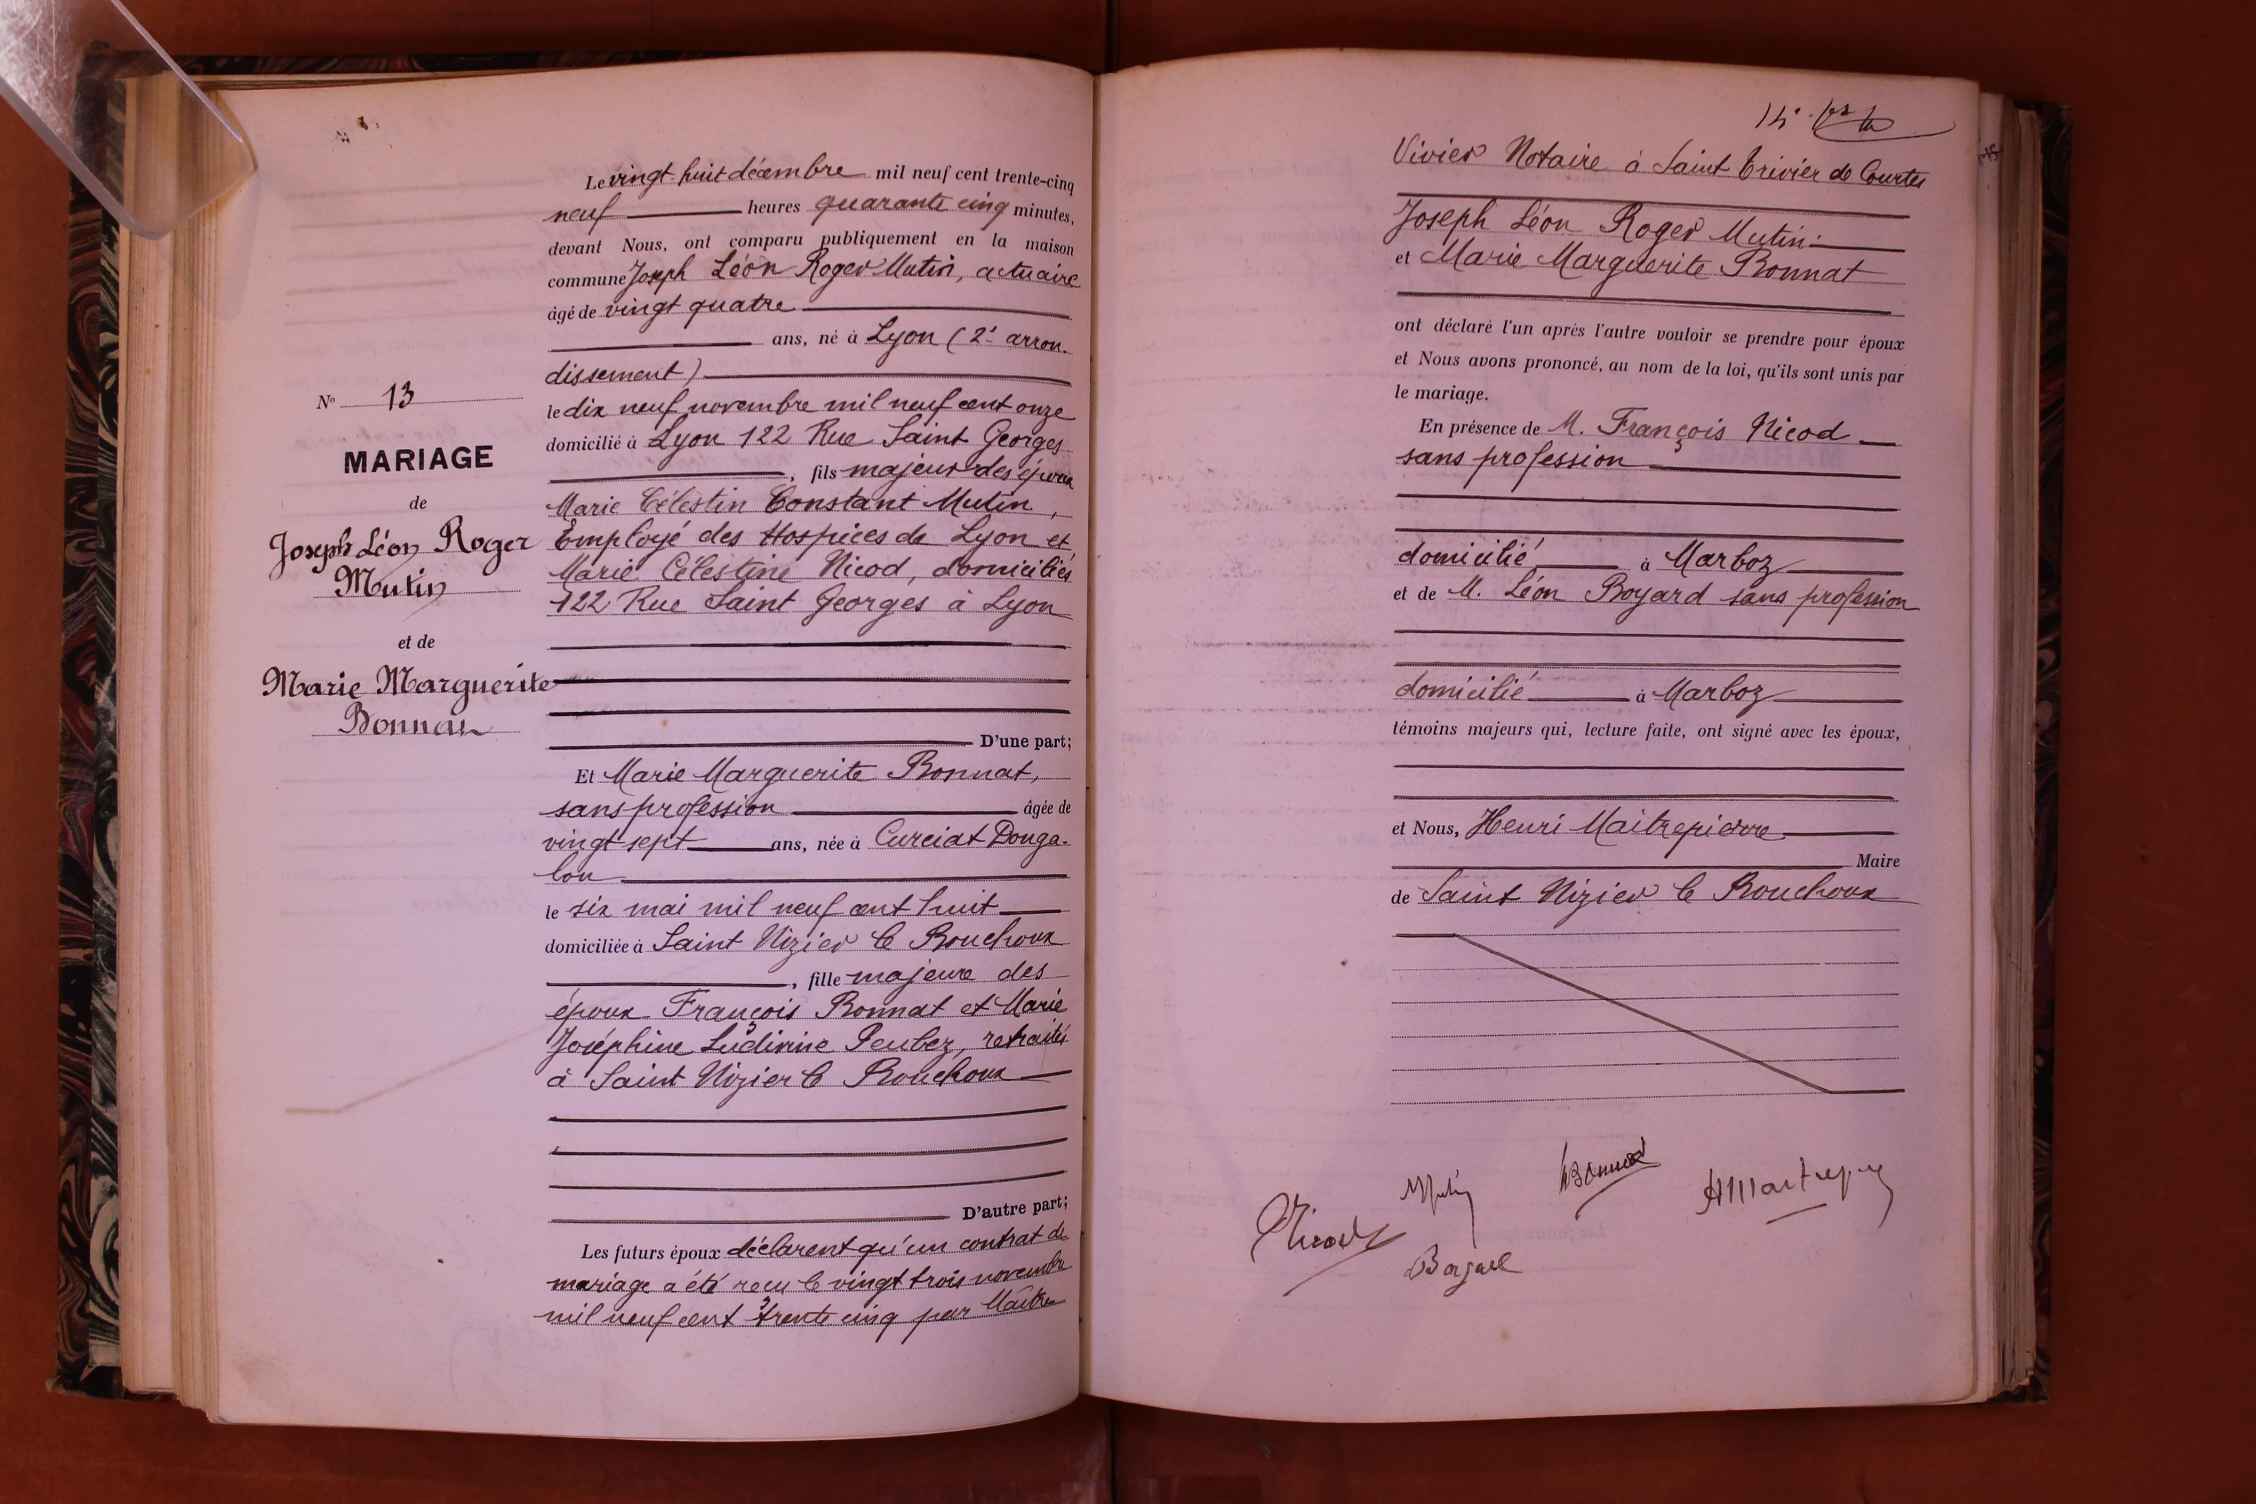 N° 13
MARIAGE
de
Joseph Léon Roger
Mutin
et de
Marie Marguerite
Bonnat
Le vingt huit décembre mil neuf cent trente-cinq
neuf heures quarante cinq minutes,
devant Nous, ont comparu publiquement en la maison
commune Joseph Léon Roger Mutin, actuaire
âgé de vingt quatre
ans, né à Lyon (2e arron-
dissement)
le dix neuf novembre mil neuf cent onze
domicilié à Lyon 122 Rue Saint Georges
, fils majeur des époux
Marie Célestin Constant Mutin,
Employé des Hospices de Lyon et
Marie Célestine Nicod, domiciliés
122 Rue Saint Georges à Lyon
D'une part;
Et Marie Marguerite Bonnat,
sans profession âgée de
vingt sept ans, née à Curciat Donga-
lon
le six mai mil neuf cent huit
domiciliée à Saint Nizier le Bouchoux
, fille majeure des
époux François Bonnat et Marie
Joséphine Ludivine Peubez, retraités
à Saint Nizier le Bouchoux
D'autre part;
Les futurs époux déclarent qu'un contrat de
mariage a été reçu le vingt trois novembre
mil neuf cent trente cinq par Maître
Vivier Notaire à Saint Trivier de Courtes
Joseph Léon Roger Mutin
et Marie Marguerite Bonnat
ont déclaré l'un après l'autre vouloir se prendre pour époux
et Nous avons prononcé, au nom de la loi, qu'ils sont unis par
le mariage.
En présence de M. François Nicod
sans profession
domicilié à Marboz
et de M. Léon Boyard sans profession
domicilié à Marboz
témoins majeurs qui, lecture faite, ont signé avec les époux,
et Nous, Henri Maitrepierre
Maire
de Saint Nizier le Bouchoux
Mutin
Nicod
Boyard